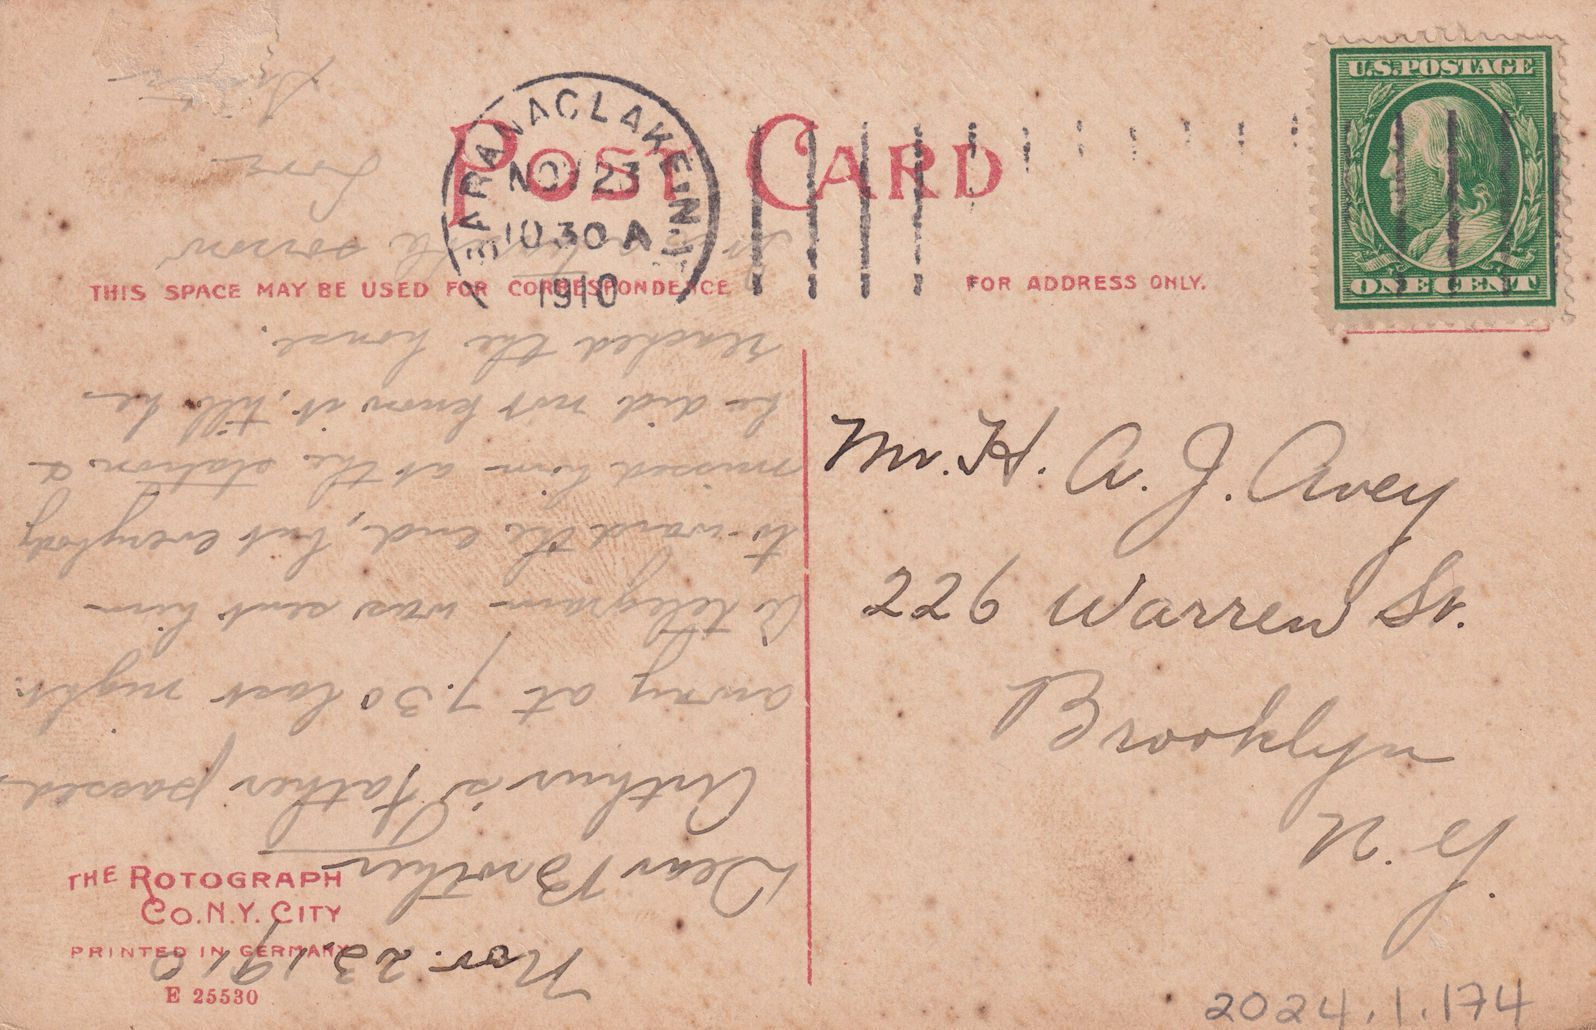 POST CARD
SARANAC LAKE, N.Y.
NOV 23
10 30 A
1910
U.S. POSTAGE
ONE CENT
THIS SPACE MAY BE USED FOR CORRESPONDENCE
FOR ADDRESS ONLY.
Mr. H. A. J. Avey
226 Warren St.
Brooklyn
N. Y.
Nov. 23, 1910
Dear Brother
Arthur's father passed
away at 7.30 last night.
A telegram was sent him
to-ward the end, but everybody
missed him at the station &
he did not know it, till he
reached the house.
In haste & sorrow
THE ROTOGRAPH
CO. N.Y. CITY
PRINTED IN GERMANY
E 25530
2024.1.174